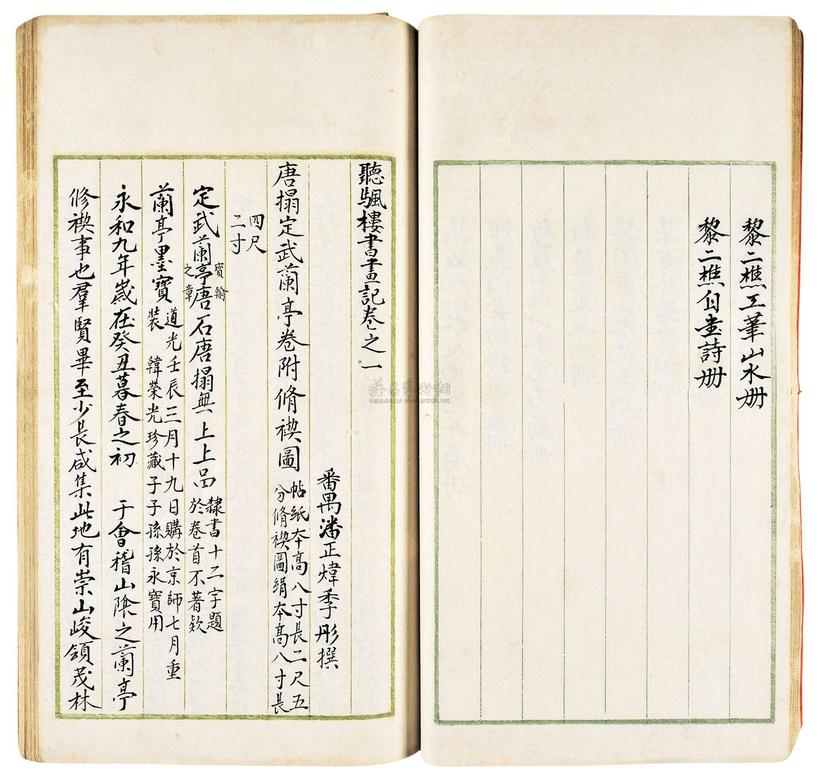 黎二樵工筆山水册
黎二樵自書詩册
聽颿樓書畫記卷之一
番禺潘正煒季彤撰
唐搨定武蘭亭卷附脩禊圖 帖紙本高八寸長二尺五
分脩禊圖絹本高八寸長
四尺
二寸
定武蘭亭唐石唐搨無上上品 隸書十二字題
於卷首不著欵
寶翰
之章
蘭亭墨寶 道光壬辰三月十九日購於京師七月重
裝 韓榮光珍藏子子孫孫永寶用
永和九年嵗在癸丑暮春之初 于會稽山隂之蘭亭
修禊事也羣賢畢至少長咸集此地有崇山峻領茂林